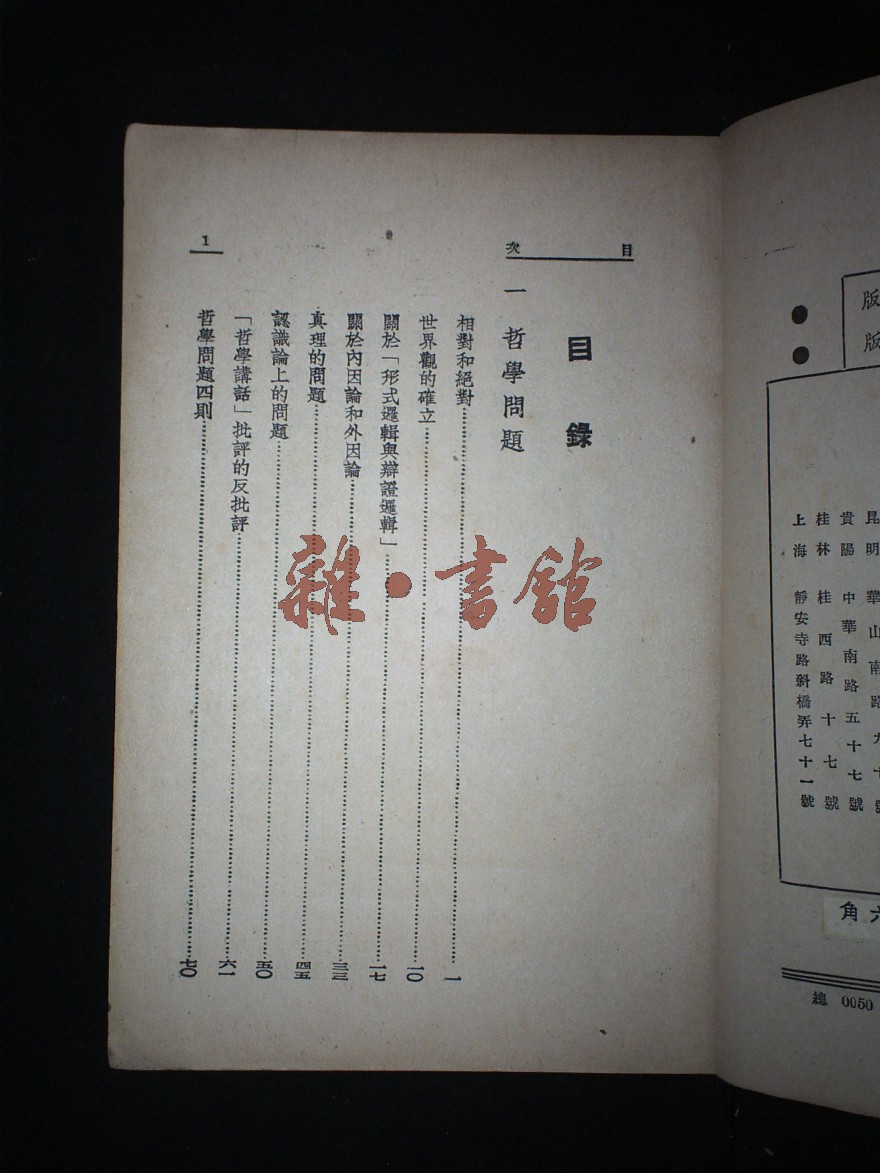 版
版
昆明 華山南路
貴陽 中華南路五十七號
桂林 桂西路十七號
上海 靜安寺路斜橋弄七十一號
角
總 0050
目次
目錄
一 哲學問題
相對和絕對……一
世界觀的確立……一〇
關於「形式邏輯與辯證邏輯」……一七
關於內因論和外因論……三三
真理的問題……四五
認識論上的問題……五〇
「哲學講話」批評的反批評……六一
哲學問題四則……七〇
1
雜・書館